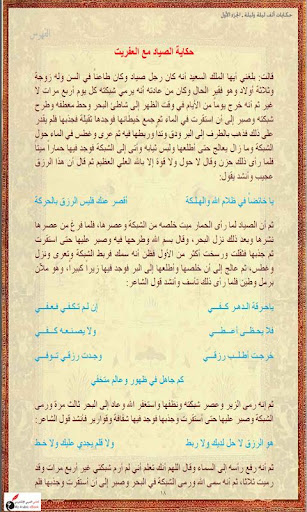 حكايات ألف ليلة وليلة .. الجزء الأول
الفهرس
حكاية الصياد مع العفريت
قالت: بلغني أيها الملك السعيد أنه كان رجل صياد وكان طاعناً في السن وله زوجة
وثلاثة أولاد وهو فقير الحال وكان من عادته أنه يرمي شبكته كل يوم أربع مرات لا
غير ثم أنه خرج يوماً من الأيام في وقت الظهر إلى شاطئ البحر وحط معطفه وطرح
شبكته وصبر إلى أن استقرت في الماء ثم جمع خيطانها فوجدها ثقيلة فجذبها فلم يقدر
على ذلك فذهب بالطرف إلى البر ودق وتداً وربطها فيه ثم عرى وغطس في الماء حول
الشبكة وما زال يعالج حتى أطلعها ولبس ثيابه وأتى إلى الشبكة فوجد فيها حماراً ميتاً
فلما رأى ذلك حزن وقال لا حول ولا قوة إلا بالله العلي العظيم ثم قال أن هذا الرزق
عجيب وأنشد يقول:
يا خائضاً في ظلام الله والهلكة أقصر عنك فليس الرزق بالحركة
ثم أن الصياد لما رأى الحمار ميت خلصه من الشبكة وعصرها، فلما فرغ من عصرها
نشرها وبعد ذلك نزل البحر، وقال بسم الله وطرحها فيه وصبر عليها حتى استقرت ثم
جذبها فثقلت ورسخت أكثر من الأول فظن أنه سمك فربط الشبكة وتعرى ونزل
وغطس، ثم عالج إلى أن خلصها وأطلعها إلى البر فوجد فيها زيراً كبيراً، وهو ملآن
برمل وطين فلما رأى ذلك تأسف وأنشد قول الشاعر:
يا حرقة الدهر كفي إن لم تكفي فعفي
فلا يحظى أعطي ولا يصنعه كفي
خرجت أطلب رزقي وجدت رزقي توفي
كم جاهل في ظهور وعالم متخفي
ثم إنه رمى الزير وعصر شبكته ونظفها واستغفر الله وعاد إلى البحر ثالث مرة ورمى
الشبكة وصبر عليها حتى استقرت وجذبها فوجد فيها شقافة وقوارير فأنشد قول الشاعر:
هو الرزق لا حل لديك ولا ربط ولا قلم يجدي عليك ولا خط
ثم أنه رفع رأسه إلى السماء وقال اللهم أنك تعلم أني لم أرم شبكتي غير أربع مرات وقد
رميت ثلاثا، ثم أنه سمى الله ورمى الشبكة في البحر وصبر إلى أن استقرت وجذبها فلم
١٨